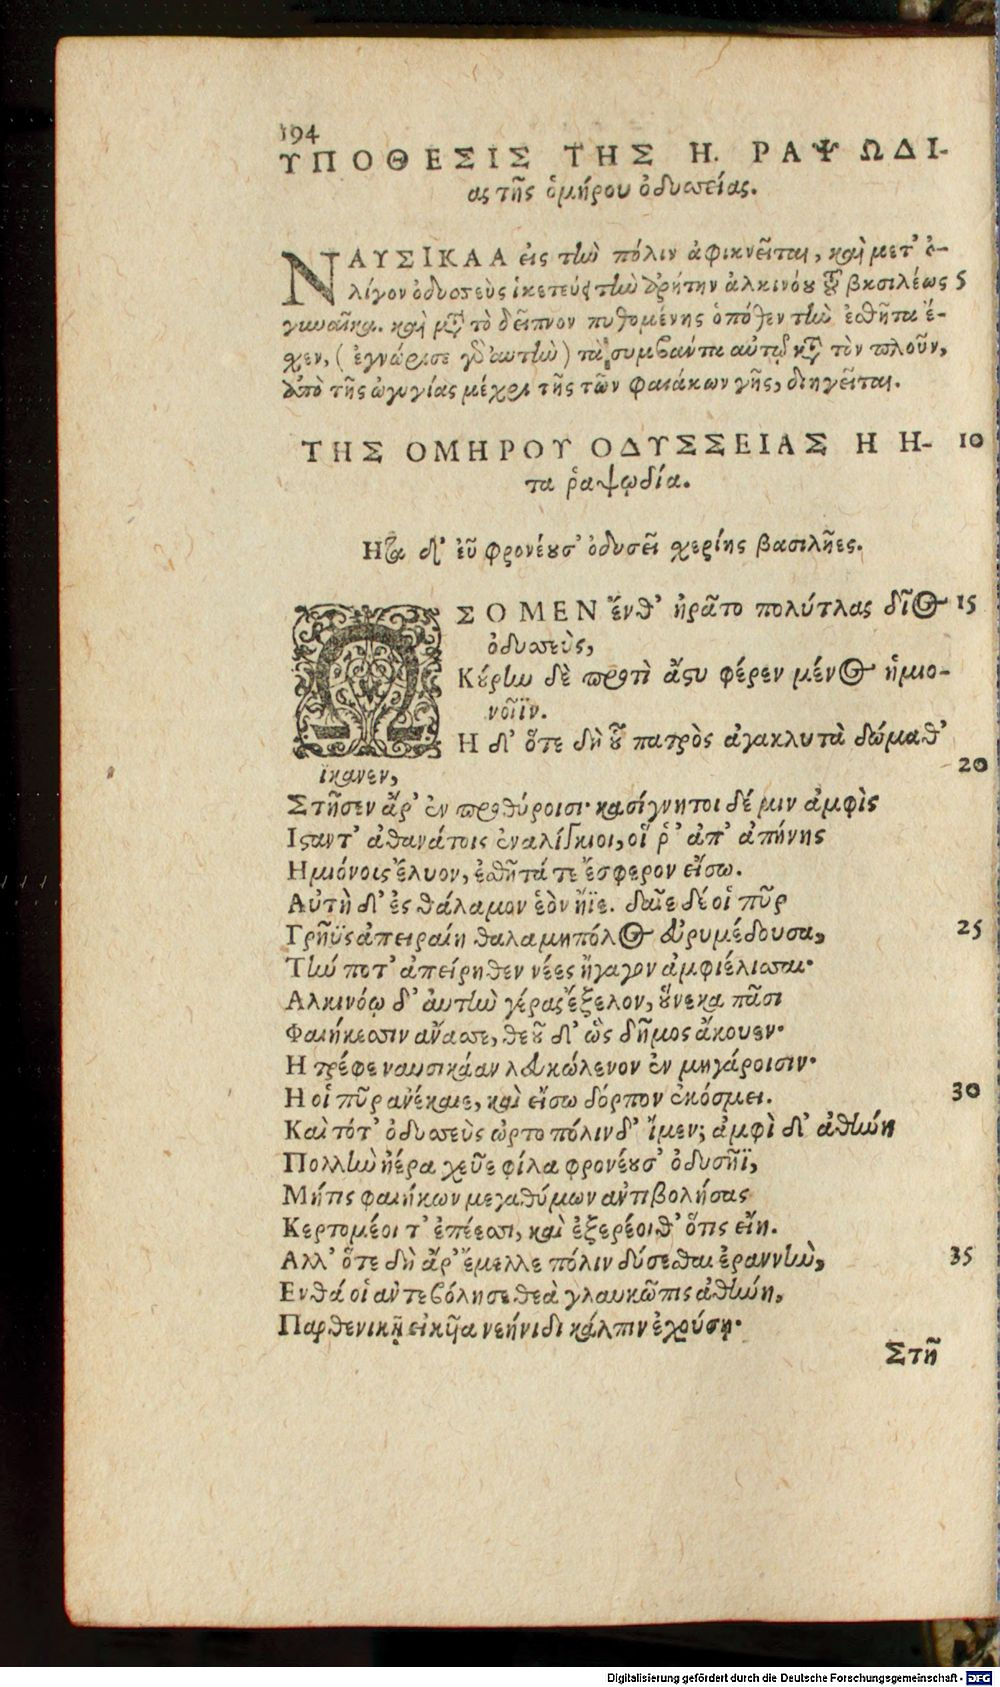 194
ΥΠΟΘΕΣΙΣ ΤΗΣ Η. ΡΑΨΩΔΙ-
ας τῆς ὁμήρου ὀδυσσείας.
ΝΑΥΣΙΚΑΑ εἰς τὴν πόλιν ἀφικνεῖται, καὶ μετ' ὀ-
λίγον ὀδυσσεὺς ἱκετεύει τὴν ἀρήτην ἀλκινόου τοῦ βασιλέως 5
γυναῖκα. καὶ μετὰ τὸ δεῖπνον πυθομένης ὁπόθεν τὴν ἐσθῆτα ἔ-
χεν, (ἐγνώρισε γὰρ αὐτὴν) τὰ συμβάντα αὐτῷ κατὰ τὸν πλοῦν,
ἀπὸ τῆς ὠγυγίας μέχρι τῆς τῶν φαιάκων γῆς, διηγεῖται.
ΤΗΣ ΟΜΗΡΟΥ ΟΔΥΣΣΕΙΑΣ Η Η- 10
τα ῥαψῳδία.
Ητα δ' εὖ φρονέουσ' ὀδυσεῖ χερίης βασιλῆες.
ΩΣ ΟΜΕΝ ἔνθ' ἠρᾶτο πολύτλας δῖος 15
ὀδυσσεὺς,
Κούρην δὲ προτὶ ἄστυ φέρεν μένος ἡμιο-
νοῖϊν.
Η δ' ὅτε δὴ οὗ πατρὸς ἀγακλυτὰ δώμαθ'
20
ἵκανεν,
Στῆσεν ἄρ' ἐν προθύροισι· κασίγνητοι δέ μιν ἀμφὶς
Ισταντ' ἀθανάτοις ἐναλίγκιοι, οἵ ῥ' ἀπ' ἀπήνης
Ημιόνους ἔλυον, ἐσθῆτά τε ἔσφερον εἴσω.
Αὐτὴ δ' ἐς θάλαμον ἑὸν ἤϊε. δαῖε δέ οἱ πῦρ
Γρηῢς ἀπειραίη θαλαμηπόλος εὐρυμέδουσα, 25
Τήν ποτ' ἀπείρηθεν νέες ἤγαγον ἀμφιέλισσαι·
Αλκινόῳ δ' αὐτὴν γέρας ἔξελον, οὕνεκα πᾶσι
Φαιήκεσσιν ἄνασσε, θεοῦ δ' ὣς δῆμος ἄκουεν·
Η τρέφε ναυσικάαν λευκώλενον ἐν μηγάροισιν·
Η οἱ πῦρ ἀνέκαιε, καὶ εἴσω δόρπον ἐκόσμει. 30
Καὶ τότ' ὀδυσσεὺς ὦρτο πόλινδ' ἴμεν; ἀμφὶ δ' ἀθήνη
Πολλὴν ἠέρα χεῦε φίλα φρονέουσ' ὀδυσῆϊ,
Μήτις φαιήκων μεγαθύμων ἀντιβολήσας
Κερτομέοι τ' ἐπέεσσι, καὶ ἐξερέοιθ' ὅτις εἴη.
Αλλ' ὅτε δὴ ἄρ' ἔμελλε πόλιν δύσεσθαι ἐραννὴν, 35
Ενθά οἱ ἀντεβόλησε θεὰ γλαυκῶπις ἀθήνη,
Παρθενικῇ εἰκυῖα νεήνιδι κάλπιν ἐχούσῃ·
Στῆ
Digitalisierung gefördert durch die Deutsche Forschungsgemeinschaft - DFG